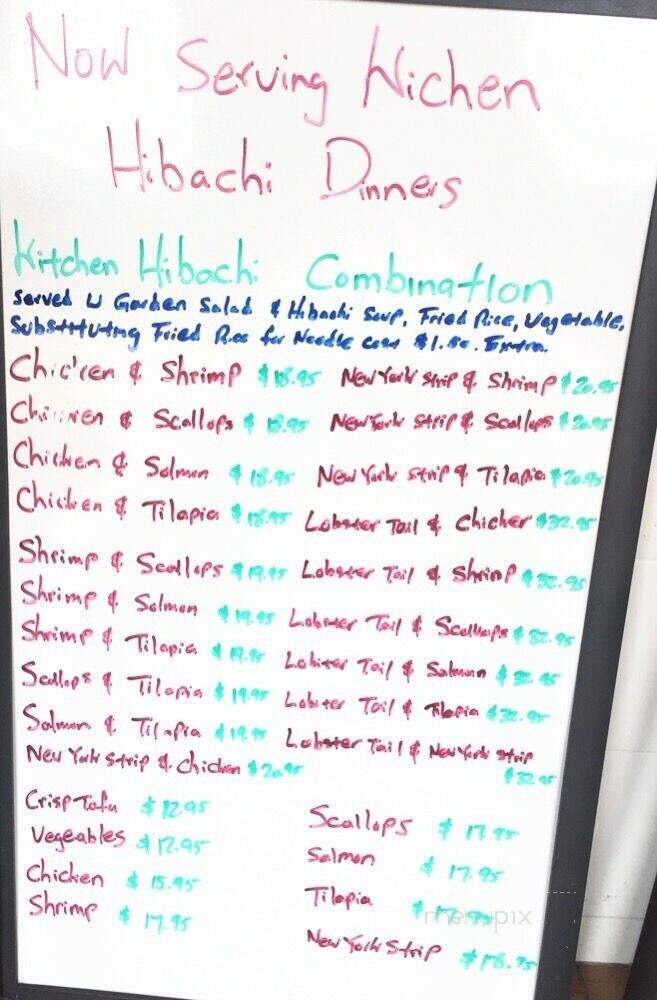 Now Serving Kichen
Hibachi Dinners
Kitchen Hibachi Combination
Served W Garden Salad & Hibachi Soup, Fried Rice, Vegetable,
Substituting Fried Rice for Needle cost $1.50. Extra.
Chicken & Shrimp $18.95
Chicken & Scallops $18.95
Chicken & Salmon $18.95
Chicken & Tilapia $18.95
Shrimp & Scallops $19.95
Shrimp & Salmon $19.95
Shrimp & Tilapia $19.95
Scallops & Tilapia $19.95
Salmon & Tilapia $19.95
New York Strip & Chicken $20.95
New York Strip & Shrimp $20.95
New York Strip & Scallops $20.95
New York Strip & Tilapia $20.95
Lobster Tail & Chicken $32.95
Lobster Tail & Shrimp $32.95
Lobster Tail & Scallops $32.95
Lobster Tail & Salmon $32.95
Lobster Tail & Tilapia $32.95
Lobster Tail & New York Strip
$32.95
Crisp Tofu $12.95
Vegeables $12.95
Chicken $15.95
Shrimp $17.95
Scallops $17.95
Salmon $17.95
Tilapia $17.95
New York Strip $18.95
menupix